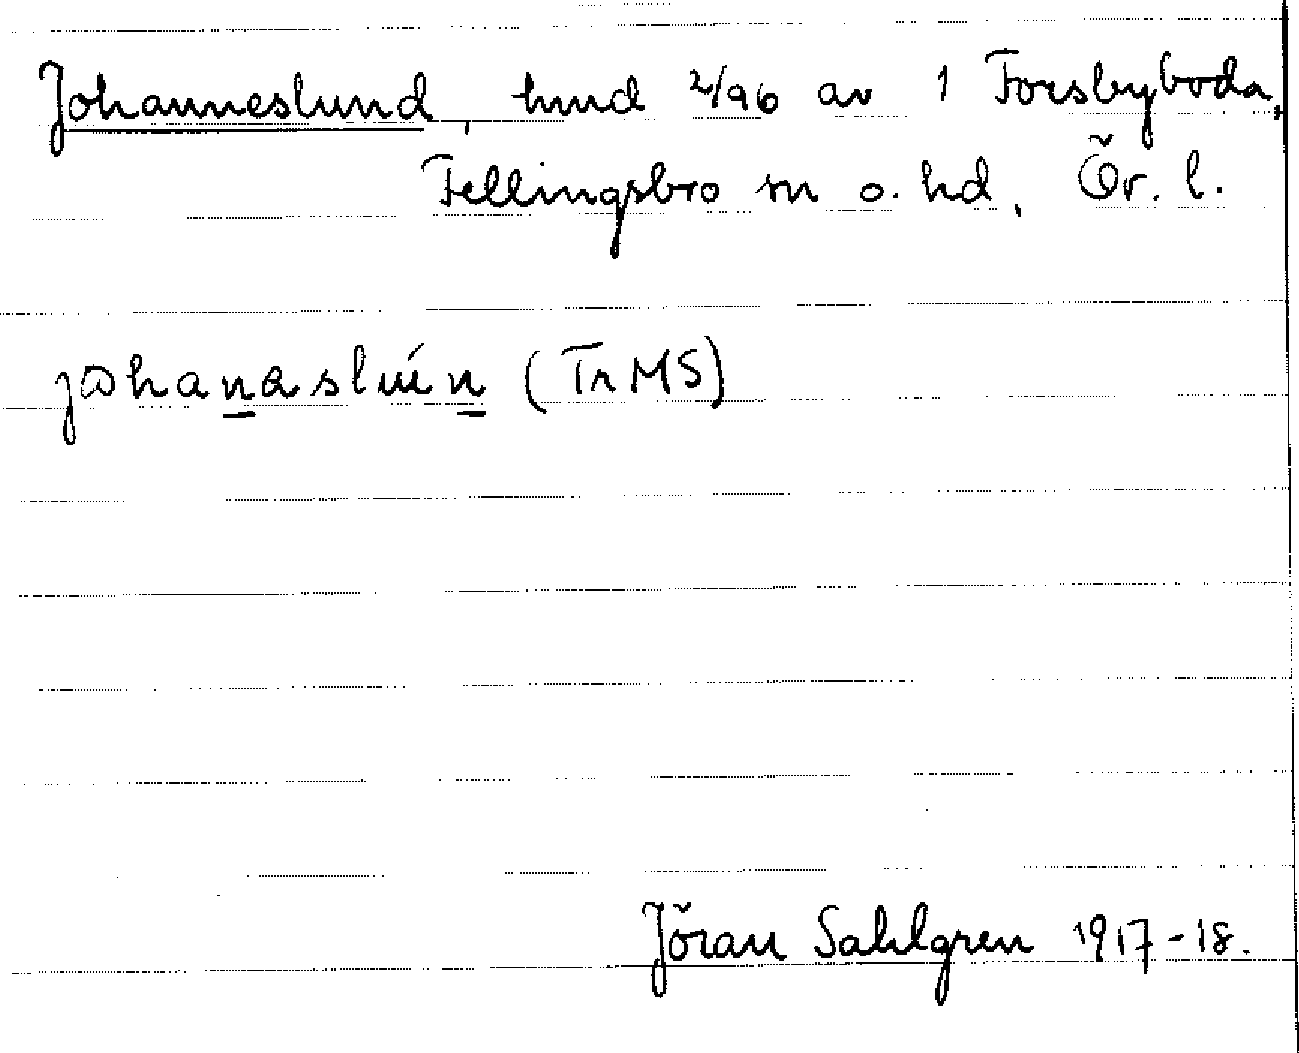 Johanneslund, hmd 2/96 av 1 Forsbyboda,
Fellingsbro sn o. hd, Ör. l.
johanaslún (TrMS)
Jöran Sahlgren 1917-18.